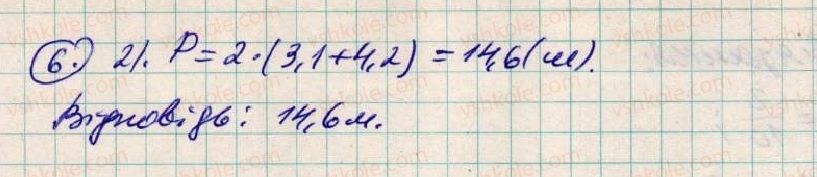 6. 2). P = 2·(3,1+4,2) = 14,6 (м).
Відповідь: 14,6 м.